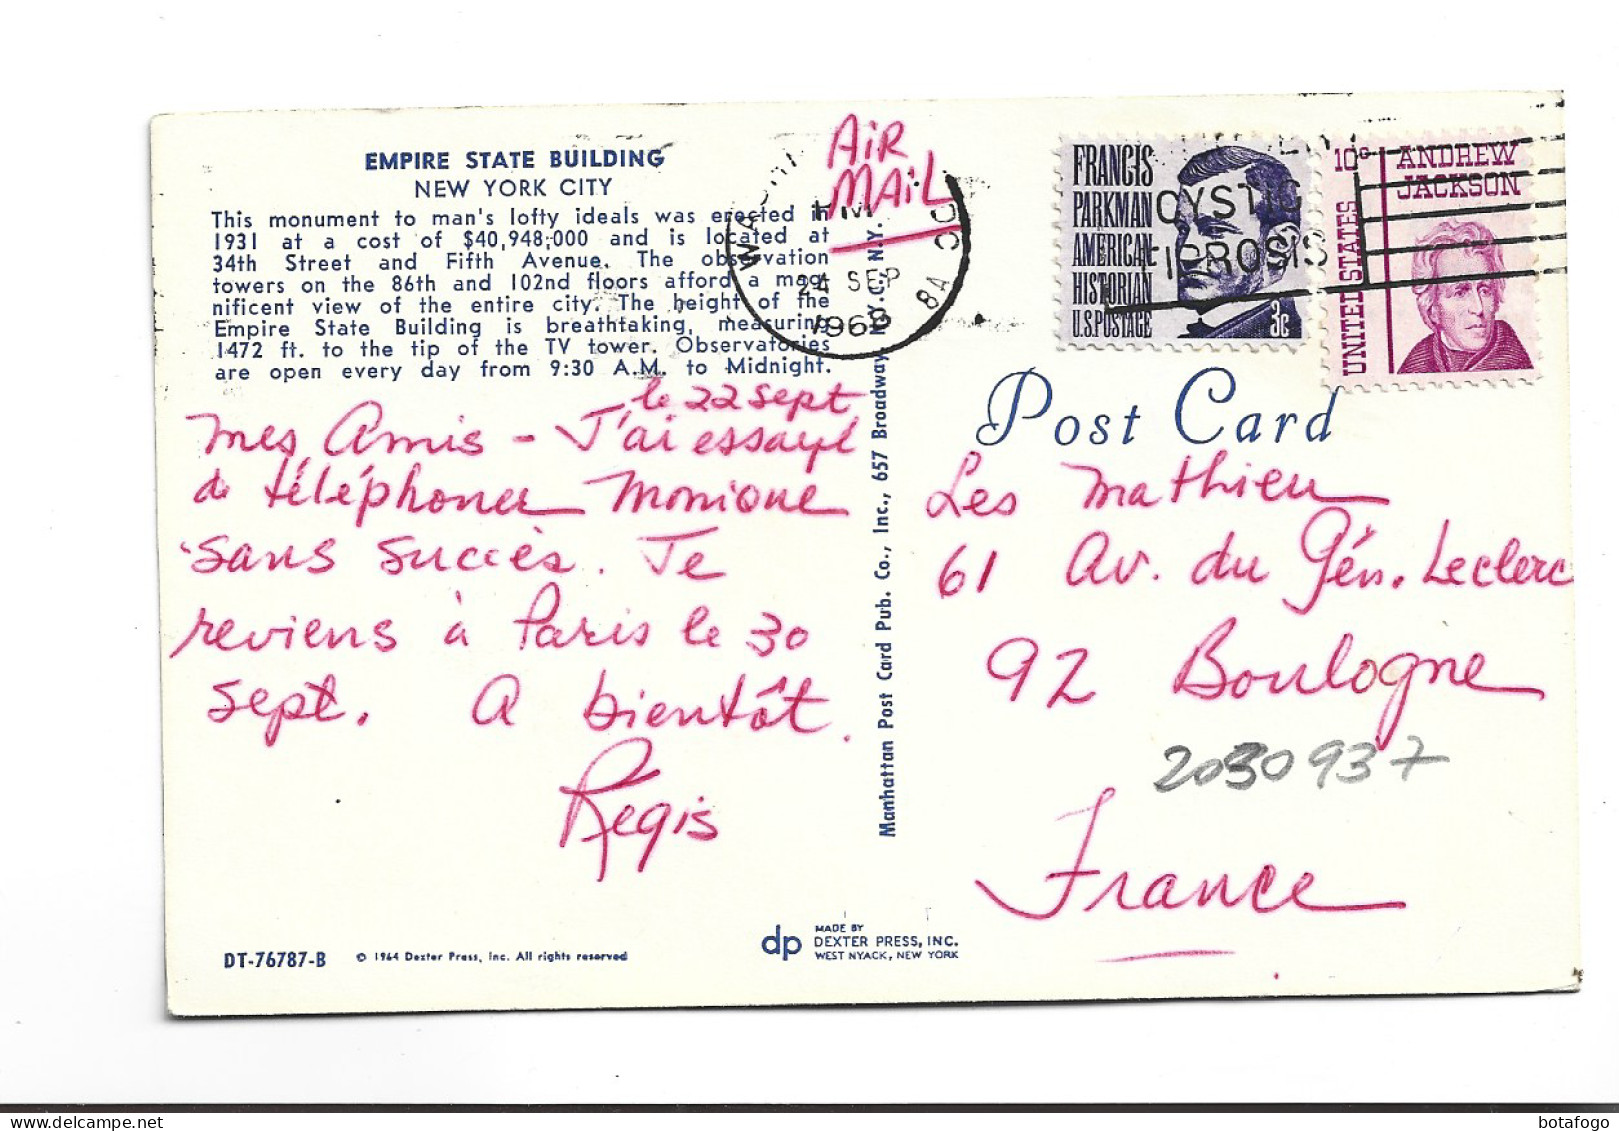 EMPIRE STATE BUILDING
NEW YORK CITY
This monument to man's lofty ideals was erected in
1931 at a cost of $40,948,000 and is located at
34th Street and Fifth Avenue. The observation
towers on the 86th and 102nd floors afford a mag-
nificent view of the entire city. The height of the
Empire State Building is breathtaking, measuring
1472 ft. to the tip of the TV tower. Observatories
are open every day from 9:30 A.M. to Midnight.
le 22 sept
Mes Amis - J'ai essayé
de téléphoner Monique
sans succès. Je
reviens à Paris le 30
sept. A bientôt.
Regis
DT-76787-B
© 1964 Dexter Press, Inc. All rights reserved
dp
MADE BY
DEXTER PRESS, INC.
WEST NYACK, NEW YORK
Manhattan Post Card Pub. Co., Inc., 657 Broadway, N.Y.C., N.Y.
AIR
MAIL
PM
24 SEP
1968
FRANCIS
PARKMAN
AMERICAN
HISTORIAN
U.S.POSTAGE
3c
CYSTIC
FIBROSIS
10c
ANDREW
JACKSON
UNITED STATES
Post Card
Les Mathieu
61 Av. du Gén. Leclerc
92 Boulogne
2030937
France
botafogo